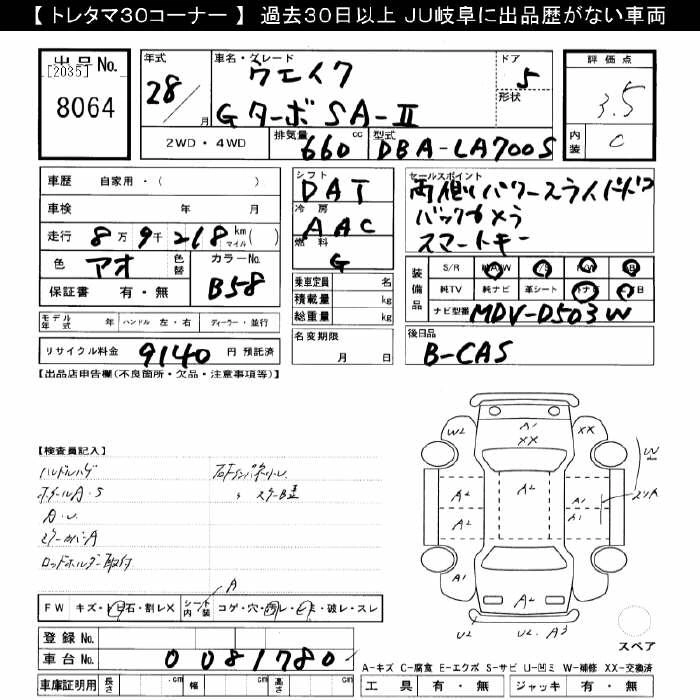 【 トレタマ30コーナー 】 過去30日以上 JU岐阜に出品歴がない車両
出品No.
[2035]
8064
年式
28／ 月
車名・グレード
ウエイク
Gターボ SA-Ⅱ
ドア
5
形状
評価点
3.5
内装
C
2WD・4WD
排気量 660 cc
型式 DBA-LA700S
車歴 自家用・( )
車検 年 月
走行 8万9千218 km マイル ( )
色 アオ
色替
カラーNo. B58
保証書 有・無
シフト
DAT
冷房
AAC
燃料
G
乗車定員 名
積載量 kg
総重量 kg
セールスポイント
両側パワースライドドア
バックカメラ
スマートキー
装備品
S/R
純TV 純ナビ 革シート
ナビ型番 MDV-D503W
モデル年式 年 ハンドル 左・右 ディーラー・並行
リサイクル料金 9140 円 預託済
名変期限
月 日
後日品
B-CAS
【出品店申告欄(不良箇所・欠品・注意事項等)】
【検査員記入】
ハンドルハゲ
ホイールA・S
A・U
ミラーカバーA
ロッドホルダー取付
W2
A1
XX
XX
W
A2
A2
A2
A1
A1
A1
A2
U2
U2・A3
スペア
A
FW キズ・トビ石・割レX
シート内装 コゲ・穴・汚レ・シミ・破レ・スレ
登録No.
車台No. 0081780
A-キズ C-腐食 E-エクボ S-サビ U-凹ミ W-補修 XX-交換済
車庫証明用 長さ cm 幅 cm 高さ cm
工具 有・無 ジャッキ 有・無